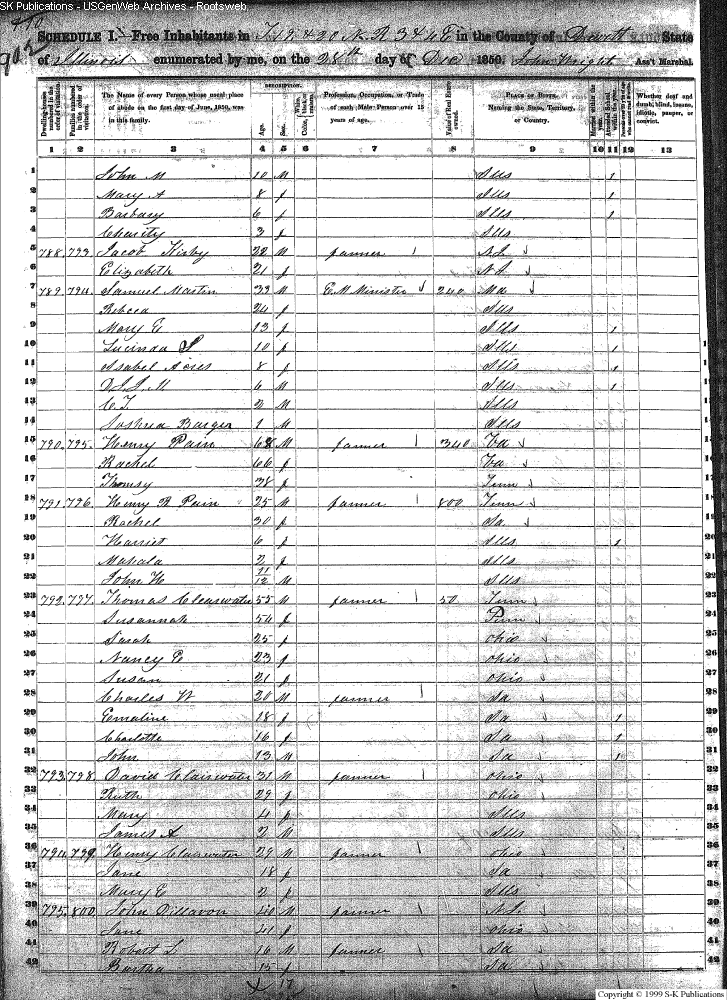 SK Publications - USGenWeb Archives - Rootsweb
902
SCHEDULE I. Free Inhabitants in T 19 & 20 N. R 3 4 & E in the County of Dewitt State
of Illinois enumerated by me, on the 28th day of Dec 1850. John Wright Ass't Marshal.
DESCRIPTION.
Dwelling-houses numbered in the order of visitation. Families numbered in the order of visitation. The Name of every Person whose usual place of abode on the first day of June, 1850, was in this family. Age. Sex. Color, White, black, or mulatto. Profession, Occupation, or Trade of each Male Person over 15 years of age. Value of Real Estate owned. PLACE OF BIRTH. Naming the State, Territory, or Country. Married within the year. Attended School within the year. Whether deaf and dumb, blind, insane, idiotic, pauper, or convict.
1 2 3 4 5 6 7 8 9 10 11 12 13
1 John M 10 M Ills 1
2 Mary A 8 f Ills 1
3 Barbary 6 f Ills 1
4 Charity 3 f Ills
5 788 793 Jacob Kirby 22 M farmer N.J.
6 Elizabeth 21 f N.J.
7 789 794 Samuel Martin 33 M E. M Minister 240 Ma
8 Rebecca 24 f Ills
9 Mary E 13 f Ills 1
10 Lucinda S 10 f Ills 1
11 Asabel Acres 8 f Ills 1
12 6 M Ills 1
13 C. T. 2 M Ills
14 Joshua Barger 1 M Ills
15 790 795 Henry Pain 68 M farmer 340 Va
16 Rachel 66 f Va
17 Thomsy 38 f Tenn
18 791 796 Henry R Pain 25 M farmer 800 Tenn
19 Rachel 30 f Ia
20 Harriet 6 f Ills 1
21 Mahala 2 f Ills
22 John H 11/12 M Ills
23 792 797 Thomas Clearwater 55 M farmer 50 Tenn
24 Susannah 54 f Penn
25 Sarah 25 f ohio
26 Nancy E 23 f ohio
27 Susan 21 f ohio
28 Charles W 20 M farmer Ia
29 Emaline 18 f Ia 1
30 Charlotte 16 f Ia 1
31 John 13 M Ia 1
32 793 798 David Clairwater 31 M farmer ohio
33 Ruth 29 f ohio
34 Mary 4 f Ills
35 James A 2 M Ills
36 794 799 Henry Clairwater 29 M farmer ohio
37 Jane 18 f Ia
38 Mary E 2 f Ills
39 795 800 John Dillavon 40 M farmer N.J.
40 Jane 41 f ohio
41 Robert S. 16 M farmer Ia
42 Bartha 15 f Ia
Copyright © 1999 S-K Publications